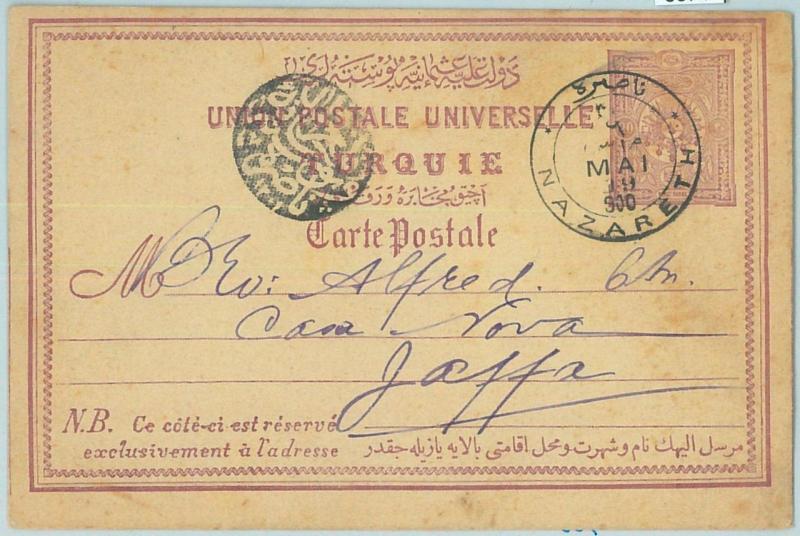 دولت علیه عثمانیه پوسته لری
UNION POSTALE UNIVERSELLE
TURQUIE
آچیق مخابره ورقه
Carte Postale
ناصره
MAI
19
900
NAZARETH
M Rev: Alfred.
Casa Nova
Jaffa
N.B. Ce côté-ci est réservé
exclusivement à l'adresse
مرسل الیهك نام و شهرت و محل اقامتی بالایه یازیله جقدر